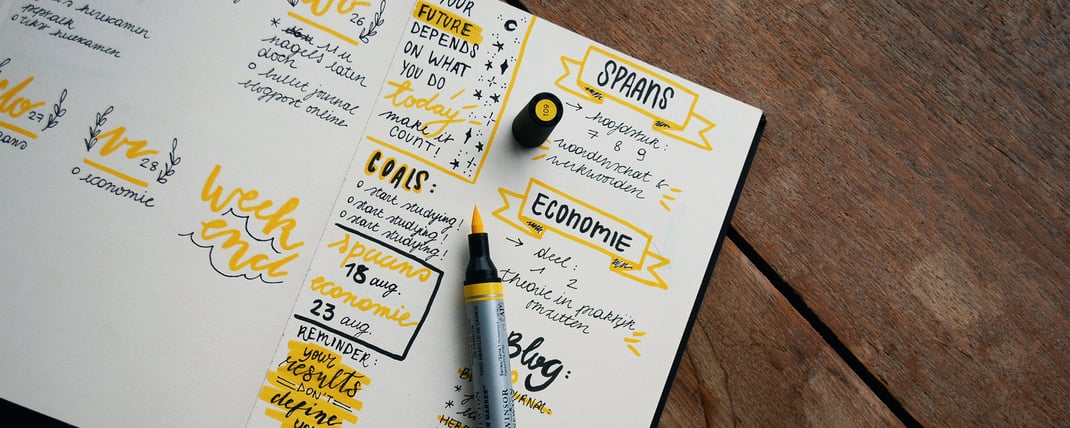 herkansen
herkansen
27
vr
28
o economie
Week
end
26
nagels laten
doen
o bullet journal
blogpost online
YOUR
FUTURE
DEPENDS
ON WHAT
YOU DO
today
make it
COUNT!
GOALS:
o start studying!
o start studying!
o start studying!
spaans
18 aug.
economie
23 aug.
REMINDER:
your
results
DON'T
define
SPAANS
→ hoofdstuk:
7 8 9
woordenschat &
werkwoorden
ECONOMIE
→ deel:
1 2
theorie in praktijk
omzetten
Blog:
109
WINSOR